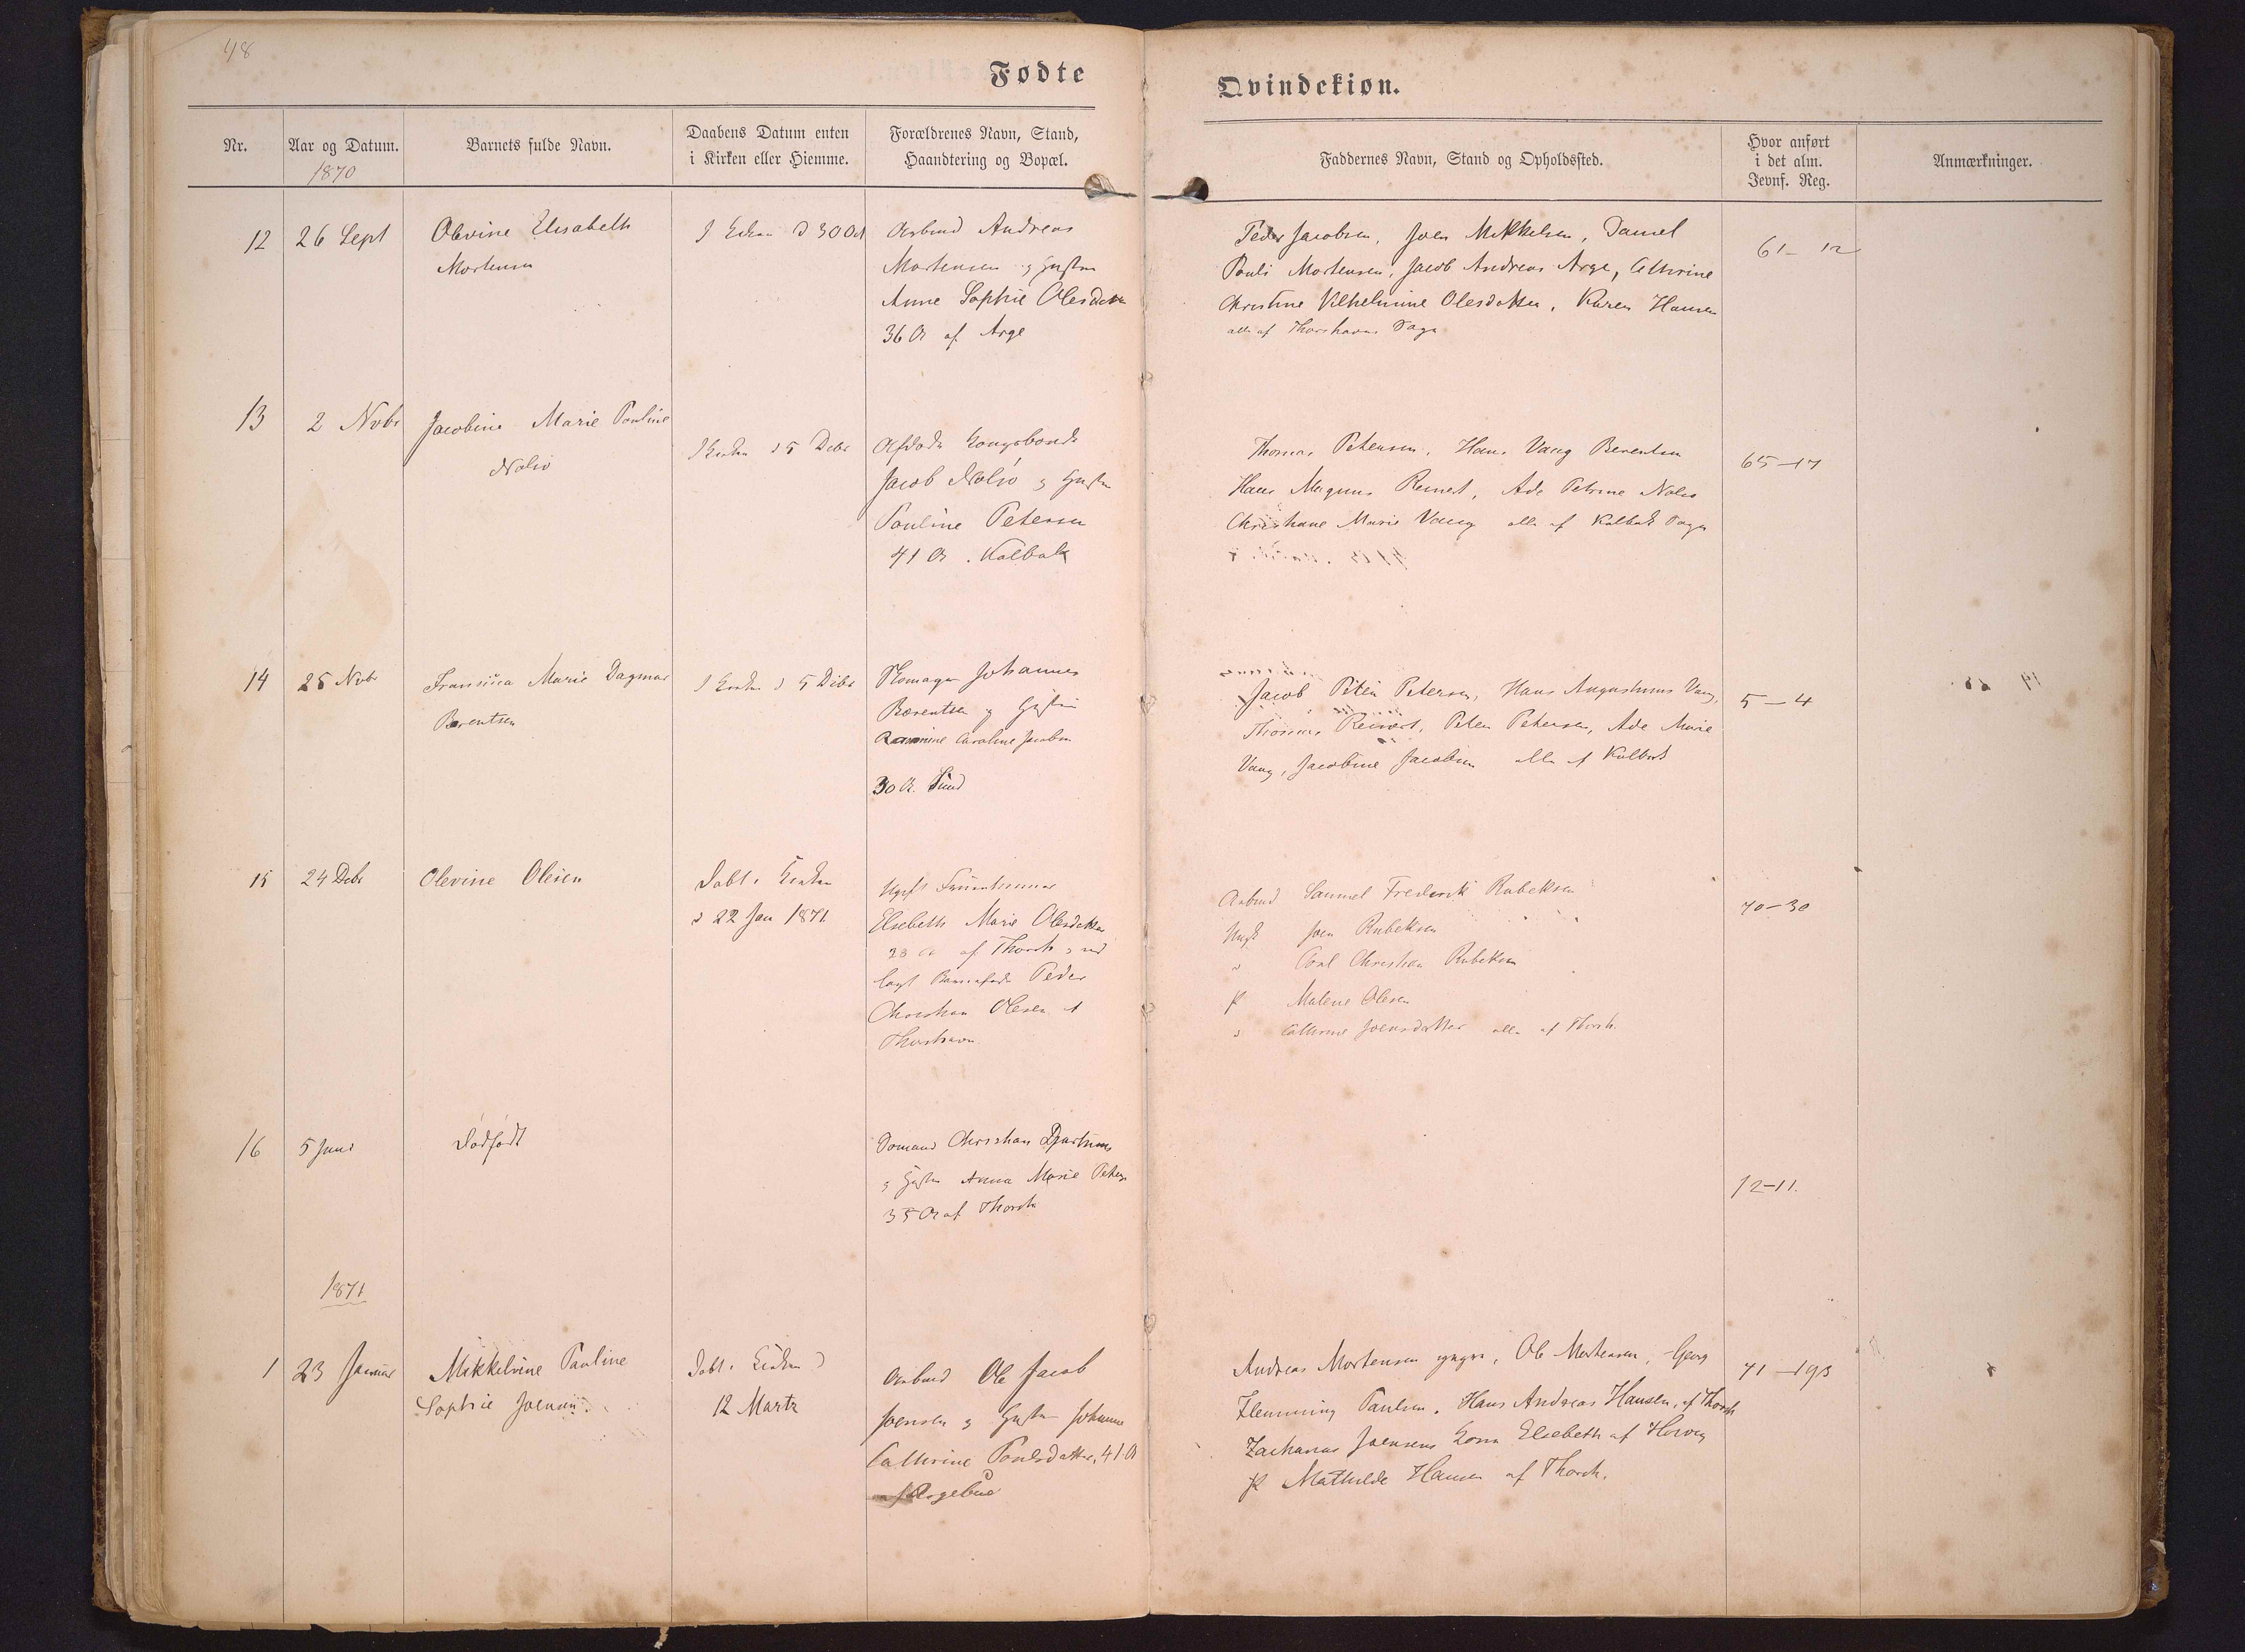 48
Fødte
Qvindekiøn.
Nr.
Aar og Datum.
1870
Barnets fulde Navn.
Daabens Datum enten
i Kirken eller Hiemme.
Forældrenes Navn, Stand,
Haandtering og Bopæl.
Faddernes Navn, Stand og Opholdssted.
Hvor anført
i det alm.
Jevnf. Reg.
Anmærkninger.
12
26 Sept
Olevine Elisabeth
Mortensen
I Kirken d 30 Oct
Arbmd Andreas
Mortensen og Hustru
Anne Sophie Olesdatter
36 A af Arge
Peder Jacobsen, Joen Mikkelsen, Daniel
Pouli Mortensen, Jacob Andreas Arge, Cathrine
Christine Vilhelmine Olesdatter, Karen Hansen
alle af Thorshavns Sogn
61 - 12
13
2 Nvbr
Jacobine Marie Pauline
Nolsø
I Kirken d 5 Debr
Afdøde Kongsbonde
Jacob Nolsø og Hustru
Pauline Petersen
41 A. Kalbak
Thomas Petersen, Hans Vang Berentsen
Hans Magnus Reinert, Ada Petrine Nolsø
Christiane Marie Vang alle af Kalbak Sogn
65-17
14
25 Nvbr
Fransisca Marie Dagmar
Berentsen
I Kirken d 5 Debr
Skomager Johannes
Berentsen og Hustru
Rasmine Caroline Jacobsen
30 A. Sund
Jacob Peter Petersen, Hans Augustinus Vang,
Thomas Reinert, Peter Petersen, Ada Marie
Vang, Jacobine Jacobsen alle af Kalbak
5-4
15
24 Debr
Olevine Olesen
Døbt i Kirken
d 22 Jan 1871
Ugift Fruentimmer
Elsebeth Marie Olesdatter
23 A af Thorsh og ud
lagt Barnefader Peder
Christian Olesen af
Thorshavn
Arbmd Samuel Frederik Rubeksen
Ungk Joen Rubeksen
" Carl Christian Rubeksen
P Malene Olesen
" Cathrine Joensdatter alle af Thorsh.
70-30
16
5 Juni
Dødfødt
Sømand Christian Djurhuus
og Hustru Anna Marie Petersen
35 A af Thorsh
12-11.
1871
1
23 Januar
Mikkeline Pauline
Sophie Joensen.
Døbt i Kirken d
12 Marts
Arbmd Ole Jacob
Joensen og Hustru Johanne
Cathrine Poulsdatter, 41 A
af Argebøe
Andreas Mortensen yngre, Ole Mortensen, Georg
Flemming Paulsen, Hans Andreas Hansen, af Thorsh
Zacharias Joensens Kone Elsebeth af Hoivig
P Mathilde Hansen af Thorsh.
71-193